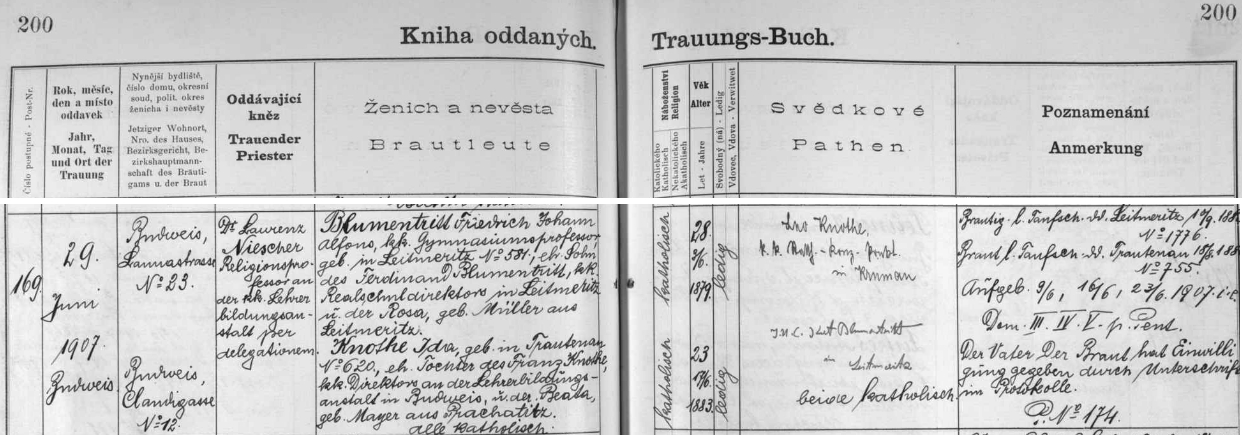 200
Kniha oddaných.
Trauungs-Buch.
200
Číslo postupné - Post-Nr.
Rok, měsíc,
den a místo
oddavek
Jahr,
Monat, Tag
und Ort der
Trauung
Nynější bydliště,
číslo domu, okresní
soud, polit. okres
ženicha i nevěsty
Jetziger Wohnort,
Nro. des Hauses,
Bezirksgericht, Be-
zirkshauptmann-
schaft des Bräuti-
gams u. der Braut
Oddávající
kněz
Trauender
Priester
Ženich a nevěsta
Brautleute
Náboženství
Religion
Katolického
Katholisch
Nekatolického
Akatholisch
Věk
Alter
Let - Jahre
Svobodný (ná) - Ledig
Vdovec, Vdova - Verwitwet
Svědkové
Pathen
Poznamenání
Anmerkung
169
29.
Juni
1907
Budweis
Budweis,
Lannastrasse
No 23.
Budweis,
Claudigasse
No 12.
Dr. Laurenz
Niescher
Religionspro-
fessor an
der kk. Lehrer
bildungsan-
stalt per
delegationem.
Blumentritt Friedrich Johann
Alfons, k.k. Gymnasiumsprofessor
geb. in Leitmeritz No 581, eh. Sohn
des Ferdinand Blumentritt, k.k.
Realschuldirektors in Leitmeritz
u. der Rosa, geb. Müller aus
Leitmeritz.
Knothe Ida, geb. in Trautenau
No 620, eh. Tochter des Franz Knothe,
k.k. Direktors an der Lehrerbildungs-
anstalt in Budweis, u. der Beata,
geb. Mayer aus Prachatitz.
alle katholisch.
katholisch
28
1879.
ledig
katholisch
23
1883.
ledig
Knothe,
k. k.
in Krumau
in
Leitmeritz
beide katholisch
Bräutig. l. Taufsch. dd. Leitmeritz
No 1776.
Braut l. Taufsch. dd. Trautenau
No 755.
Aufgeb. 9/6, 16/6, 23/6. 1907. i. e.
Dom. III. IV. V. p. Pent.
Der Vater der Braut hat Einwilli
gung gegeben durch Unterschrift
im Protokolle.
P. No 174.